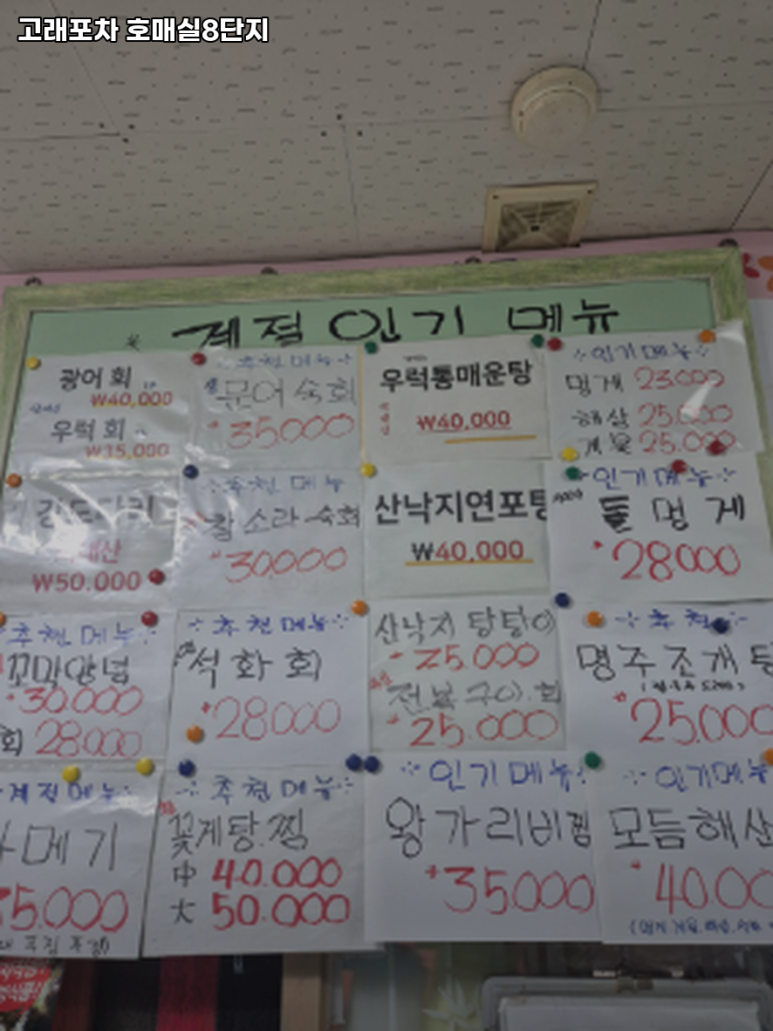 고래포차 호매실8단지
계절 인기 메뉴
광어회
₩40,000
우럭회
₩35,000
추천메뉴
문어숙회
35000
우럭통매운탕
₩40,000
인기메뉴
멍게 23.000
해삼 25.000
25.000
₩50.000
추천메뉴
참소라숙회
30.000
산낙지연포탕
₩40,000
인기메뉴
돌멍게
28000
추천메뉴
꼬막양념
30.000
회 28000
추천메뉴
석화회
28000
산낙지 탕탕이
25.000
전복구이.회
25.000
추천
명주조개탕
25.000
계절메뉴
메기
35.000
추천메뉴
꽃게탕.찜
中 40.000
大 50.000
인기메뉴
왕가리비찜
35000
인기메뉴
모듬해산
40.00